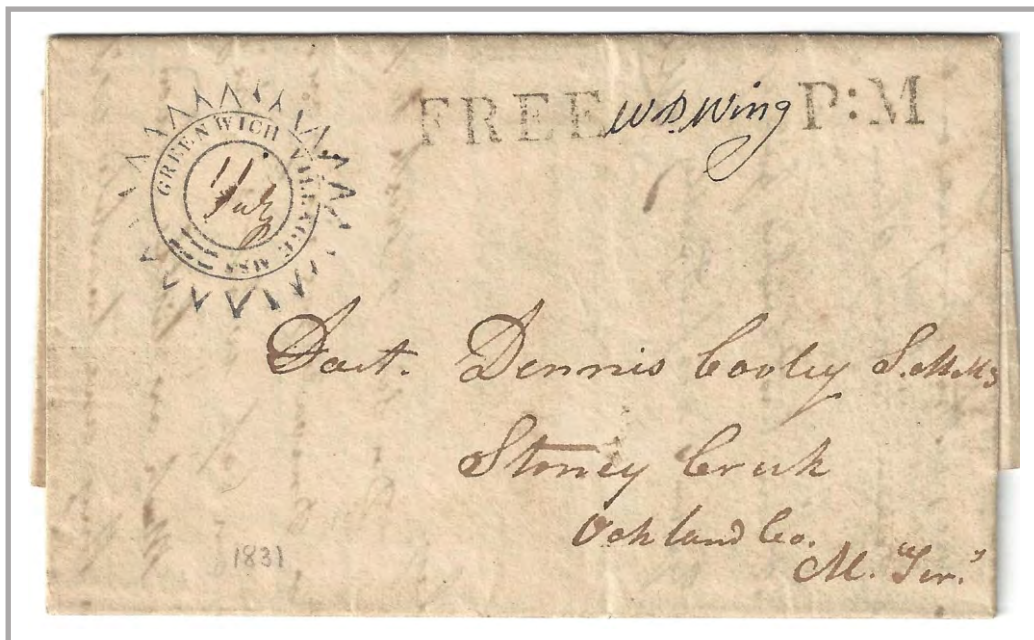 GREENWICH VILLAGE MSS
11
July
FREE W D Wing P:M
Doct. Dennis Cooley
Stoney Creek
Oakland Co.
M. "Ter."
1831